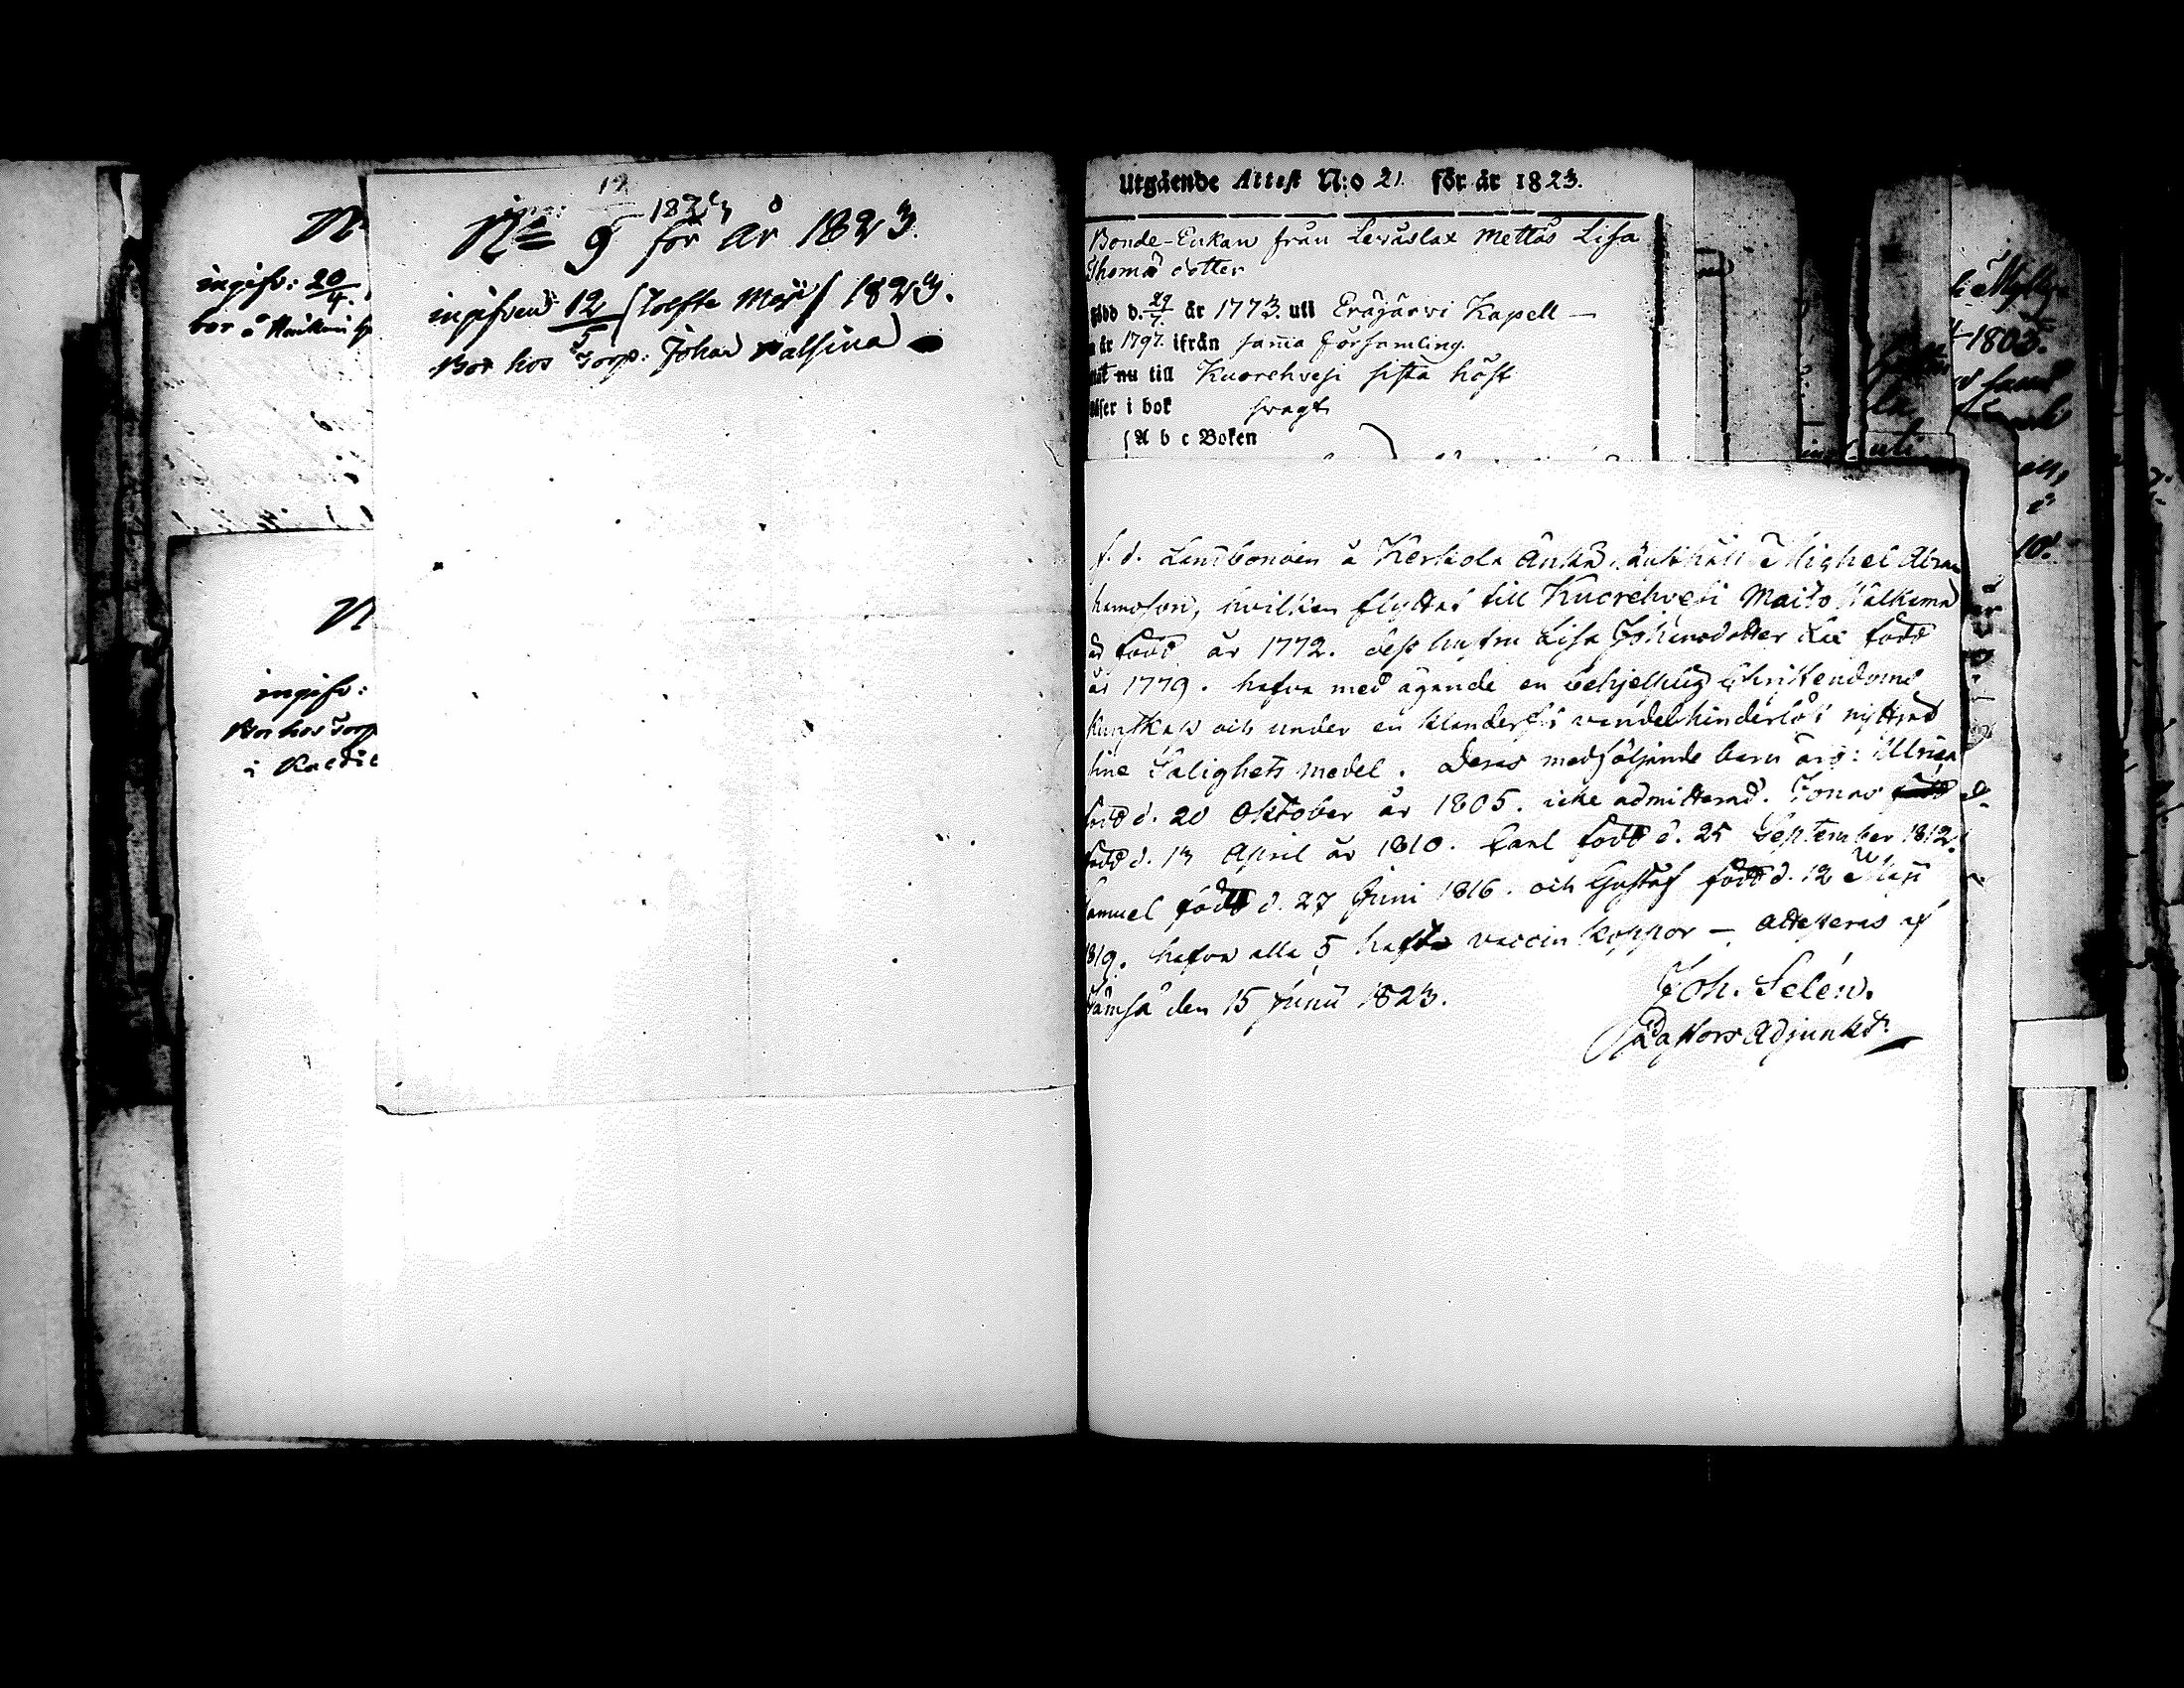 N
ingifv: 20/4.
bor å
N
ingifv:
Bor hos Torp
i
12
1823
No 9 för år 1823.
ingifven 12/5 (Tolfte Maji) 1823.
Bor hos Torp: Johan
Utgående Attest N:o 21. för år 1823.
Bonde-Enkan från Leväslax Mettäs Lisa
Thomæ dotter
född d. 29/7. år 1773. uti Eräjärvi Kapell —
år 1797. ifrån samma församling.
nu till Kuorehvesi sista höst
läser i bok svagt
A b c Boken
f. d. Landbonden å Kerkola Michel Abra
hamsson, hvilken flyttar till Kuorehvesi Maito
född år 1772. dess hustru Lisa Johansdotter född
år 1779. hafva med ägande en behjelplig Christendoms
kunskap och under en klanderfri vandel hinderlöst nyttjad
sine Salighets medel. Deras medföljande barn äro: Ulrica
född d. 20 Oktober år 1805. icke admitterad. Jonas
född d. 13 April år 1810. Carl född d. 25 September 1812.
Samuel född d. 27 Juni 1816. och Gustaf född d. 12 Maji
1819. hafva alla 5 haft vaccin koppor — attesteras af
Jämsä den 15 Junii 1823.
Joh. Selén.
Pastors Adjunkt.
1803.